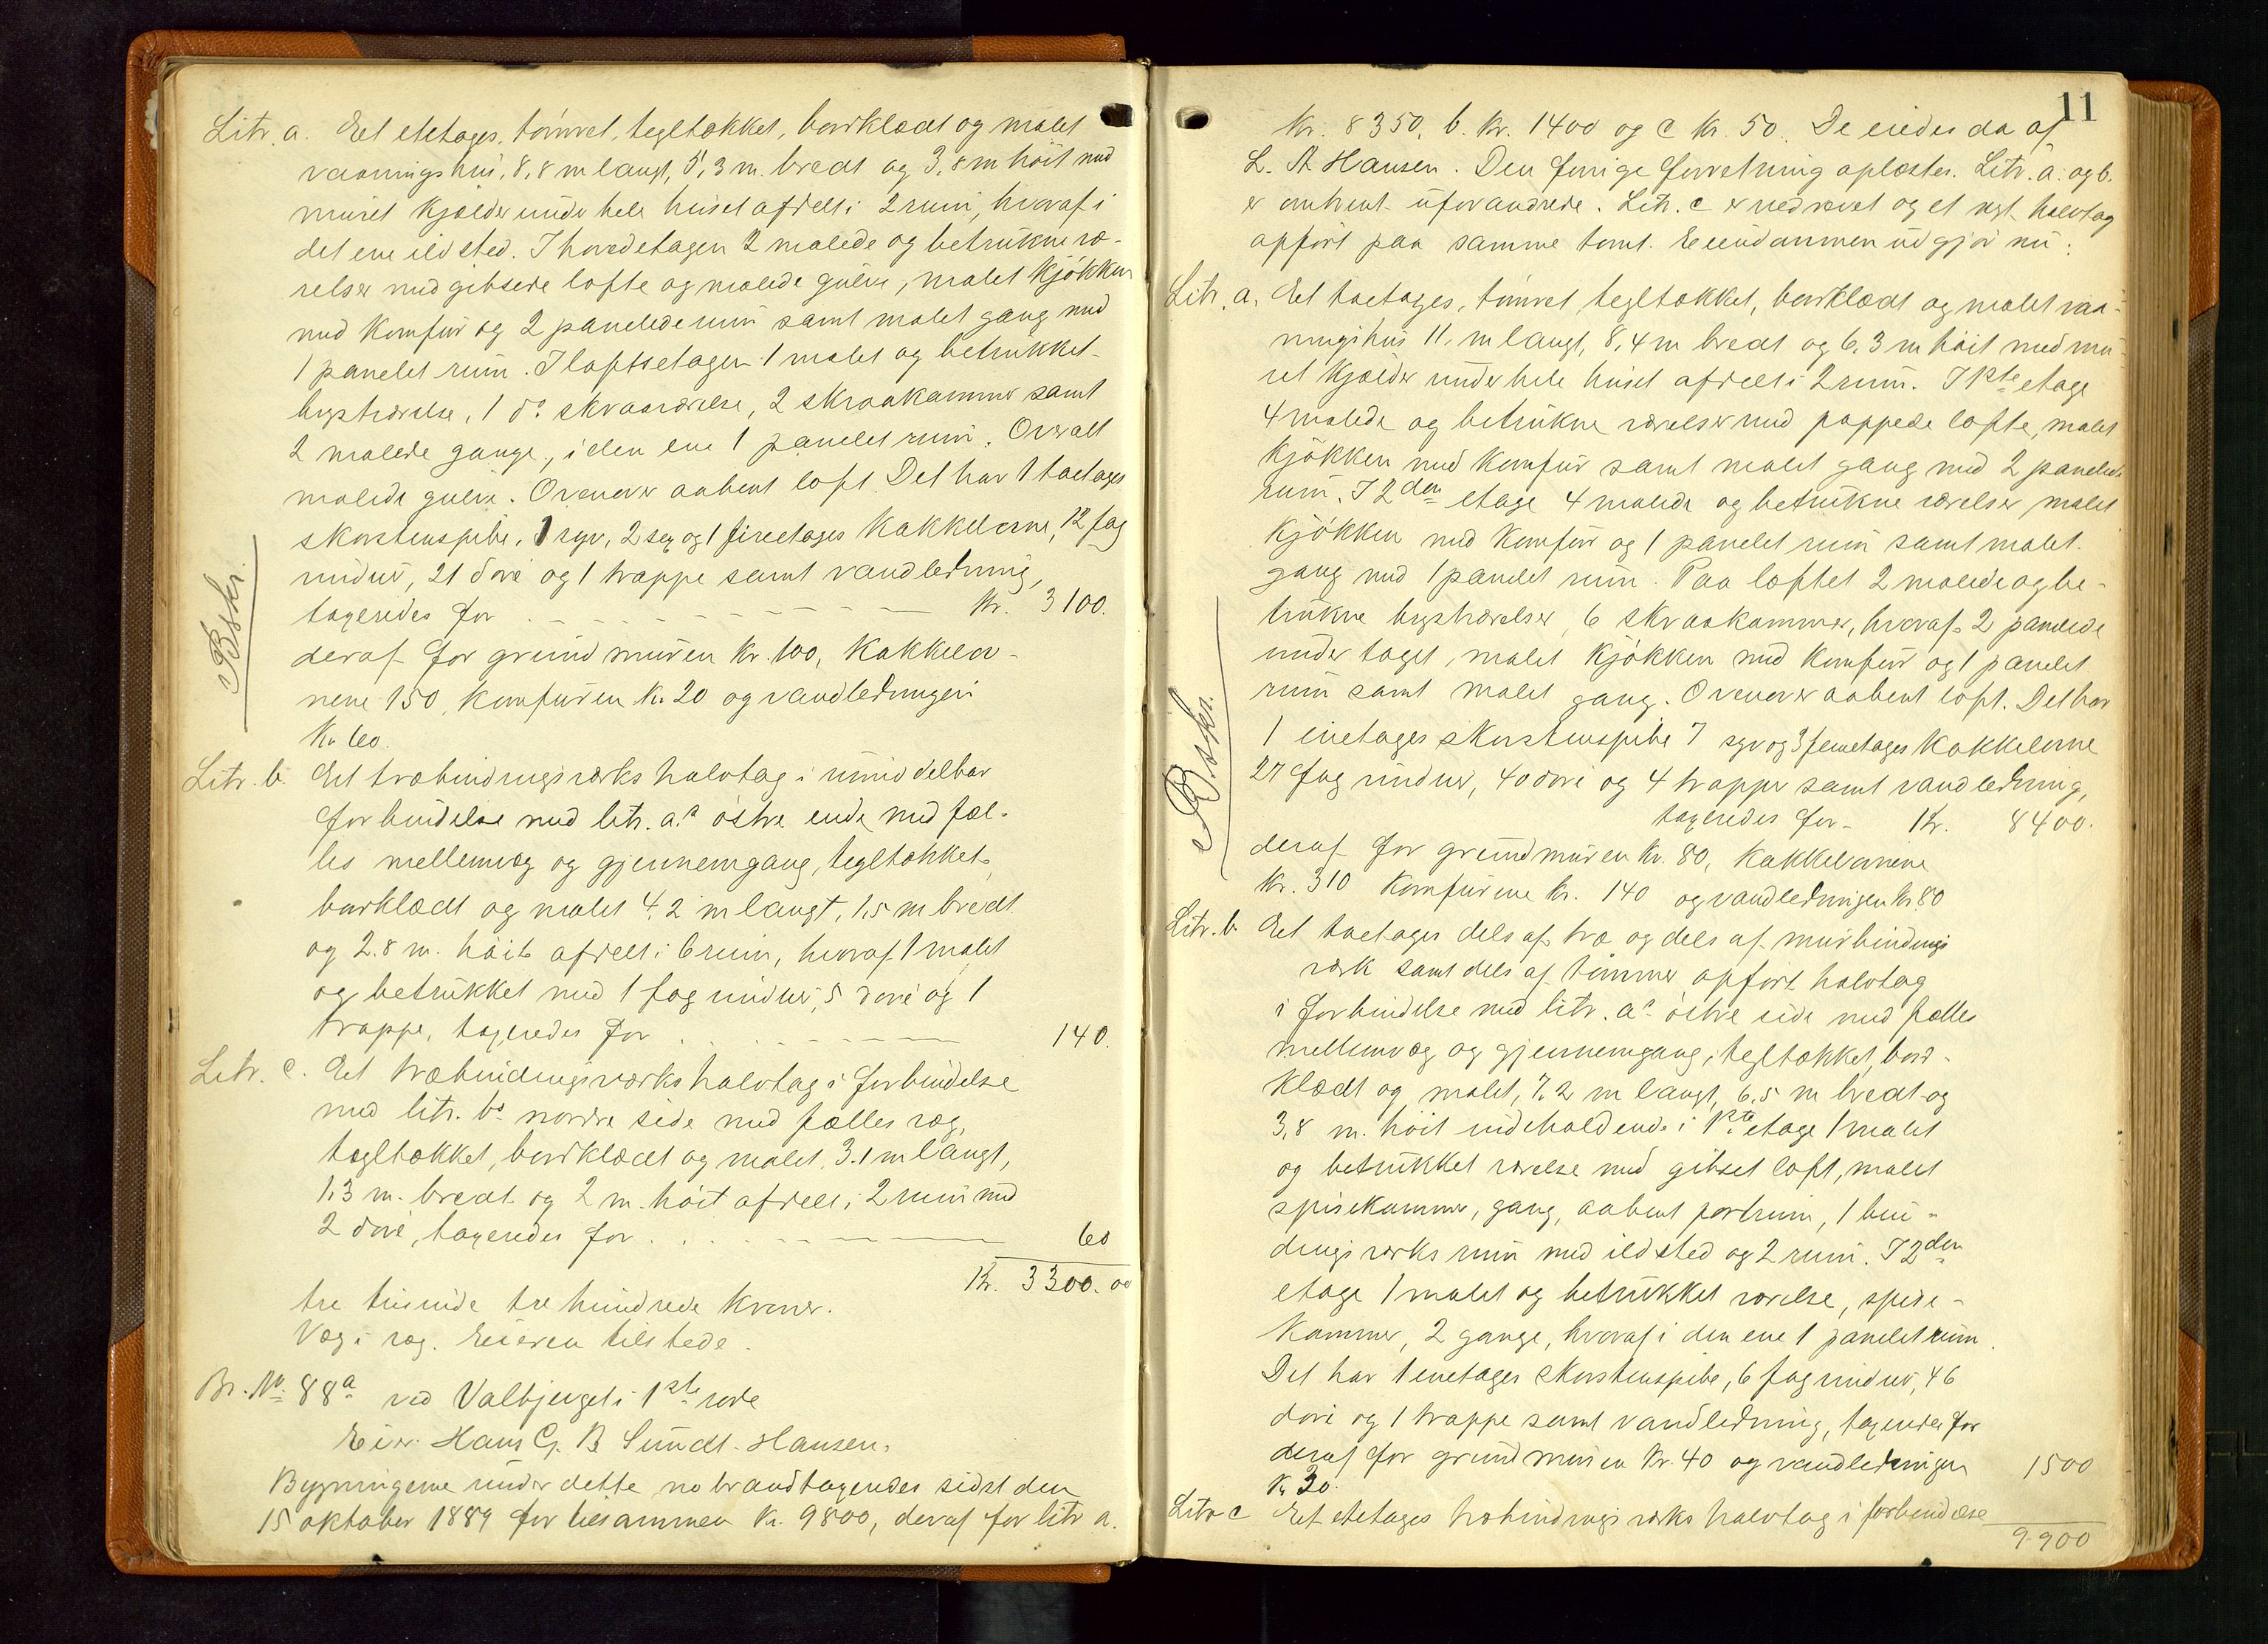 Litr. a. Eet etetages, tømret, tegltækket, bordklædt og malet
vaaningshus, 8,8 m langt, 5,3 m. bredt og 3,8 m høit med
muret Kjælder under hele huset afdelt i 2 rum, hvoraf i
det ene ildsted. I hovedetagen 2 malede og betrukne væ-
relser med gibsede lofte og malede gulve, malet Kjøkken
med Komfur og 2 panelede rum samt malet gang med
1 panelet rum. I loftsetagen 1 malet og betrukket
kvistværelse, 1 do skraaværelse, 2 skraakammer samt
2 malede gange, i den ene 1 panelet rum. Overalt
malede gulve. Ovenover aabent loft. Det har 1 toetages
skorstenspibe, 1 syv, 2 sex og 1 fireetages Kakkelovne, 12 fag
vinduer, 21 døre og 1 trappe samt vandledning,
taxeredes for . - - - - - - Kr. 3100.
deraf for grundmuren Kr. 100, Kakkelov-
nene 150, Komfuren Kr. 20 og vandledningen
Kr 60.
Beskr.
Litr. b. Eet træbindingsværks halvtag i umiddelbar
forbindelse med litr. a.s østre ende med fæl-
les mellemvæg og gjennemgang, tegltækket,
bordklædt og malet 4,2 m langt, 1,5 m bredt
og 2.8 m. høit afdelt i 6 rum, hvoraf 1 malet
og betrukket med 1 fag vinduer, 5 døre og 1
trappe, taxeredes for . . - - - - 140.
Litr. c. Eet træbindingsværks halvtag i forbindelse
med litr. b.s nordre side med fælles væg,
tegltækket, bordklædt og malet, 3.1 m langt,
1,3 m. bredt og 2 m. høit afdelt i 2 rum med
2 døre, taxeredes for . . . - - - - 60
Kr. 3300.00
tre tusinde tre hundrede Kroner.
Væg i væg. Eieren tilstede.
Br. No 88a ved Valbjerget i 1ste rode
Eier: Hans G. B. Sundt-Hansen.
Bygningerne under dette no brandtaxeredes sidst den
15 oktober 1889 for tilsammen Kr. 9800, deraf for litr a.
11
Kr. 8350, b. Kr. 1400 og c Kr. 50. De eiedes da af
L. A Hansen. Den forrige forretning oplæstes. Litr. a. og b.
er omtrent uforandrede. Litr. c er nedrevet og et nyt halvtag
opført paa samme tomt. Eiendommen udgjør nu:
Litr. a. Eet toetages, tømret, tegltækket, bordklædt og malet vaa-
ningshus 11. m langt, 8,4 m bredt og 6,3 m høit med mu-
ret Kjælder under hele huset afdelt i 2 rum. I 1ste etage
4 malede og betrukne værelser med pappede lofte, malet
Kjøkken med Komfur samt malet gang med 2 panelede
rum. I 2den etage 4 malede og betrukne værelser, malet
Kjøkken med Komfur og 1 panelet rum samt malet
gang med 1 panelet rum. Paa loftet 2 malede og be-
trukne kvistværelser, 6 skraakammer, hvoraf 2 panelede
under taget, malet Kjøkken med Komfur og 1 panelet
rum samt malet gang. Ovenover aabent loft. Det har
1 enetages skorstenspibe 7 syv og 3 femetages Kakkelovne
27 fag vinduer, 40 døre og 4 trapper samt vandledning,
taxeredes for - Kr. 8400.
deraf for grundmuren Kr. 80, Kakkelovnene
Kr. 310 Komfurene Kr. 140 og vandledningen Kr 80
Beskr.
Litr. b Eet toetages dels af træ og dels af murbindings
værk samt dels af tømmer opført halvtag
i forbindelse med litr. a.s østre side med fælles
mellemvæg og gjennemgang, tegltækket, bord-
klædt og malet, 7,2 m langt, 6,5 m bredt og
3,8 m. høit indeholdende i 1ste etage 1 malet
og betrukket værelse med gibset loft, malet
spisekammer, gang, aabent portrum, 1 bin-
dingsværks rum med ildsted og 2 rum. I 2den
etage 1 malet og betrukket værelse, spise-
kammer, 2 gange, hvoraf i den ene 1 panelet rum.
Det har 1 enetages skorstenspibe, 6 fag vinduer, 46
døre og 1 trappe samt vandledning, taxeredes for
deraf for grundmuren Kr. 40 og vandledningen 1500
Kr 30.
Litr c Et etetages træbindingsværks halvtag i forbindelse
9900